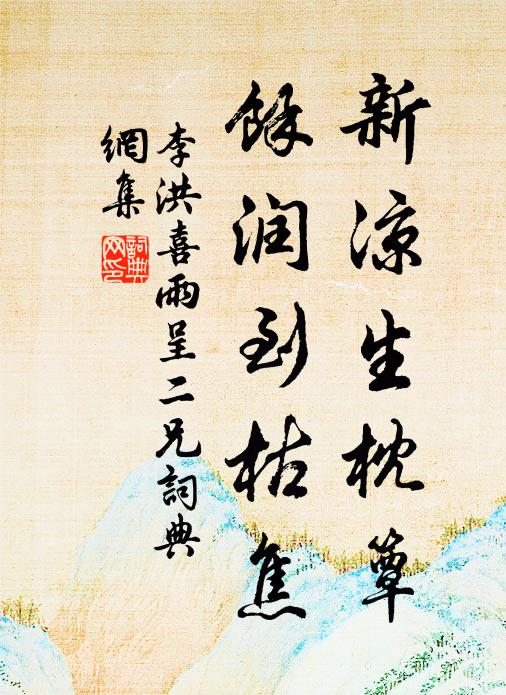 新凉生枕簟
餘润到枯焦
李洪喜雨呈二兄詞典
網集
詞典网印